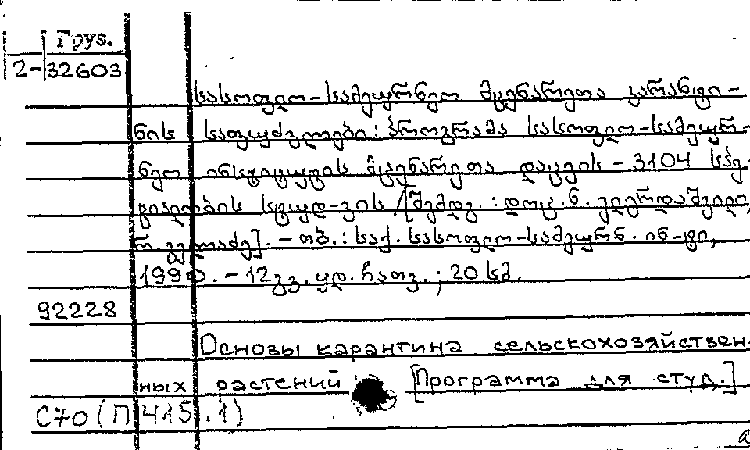 Груз.
2-32603
სასოფლო-სამეურნეო მცენარეთა კარანტი-
ნის საფუძვლები: პროგრამა სასოფლო-სამეურ-
ნეო ინსტიტუტის მცენარეთა დაცვის - 3104 სპე-
ციალობის სტუდ-ვის /[შემდგ.: დოც. ნ. ელერდაშვილი,
. - თბ.: საქ. სასოფლო-სამეურნ. ინ-ტი,
1990. - 12 გვ. უდ. ჩათვ. ; 20 სმ.
92228
Основы карантина сельскохозяйствен-
ных растений [Программа для студ.]
С70(П415.1)